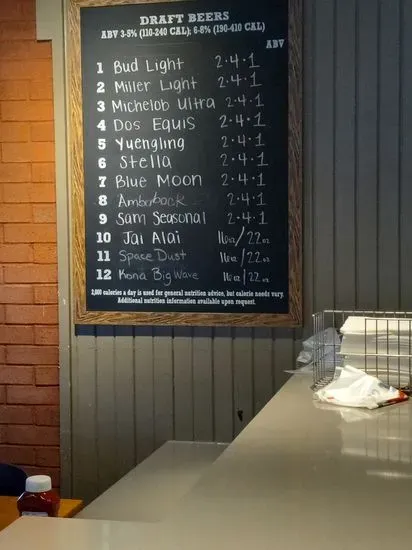 DRAFT BEERS
ABV 3-5% (110-240 CAL); 6-8% (190-410 CAL)
ABV
1 Bud Light 2.4.1
2 Miller Light 2.4.1
3 Michelob Ultra 2.4.1
4 Dos Equis 2.4.1
5 Yuengling 2.4.1
6 Stella 2.4.1
7 Blue Moon 2.4.1
8 Amberbock 2.4.1
9 Sam Seasonal 2.4.1
10 Jai Alai 16oz/22oz
11 Space Dust 16oz/22oz
12 Kona Big Wave 16oz/22oz
2,000 calories a day is used for general nutrition advice, but calorie needs vary.
Additional nutrition information available upon request.